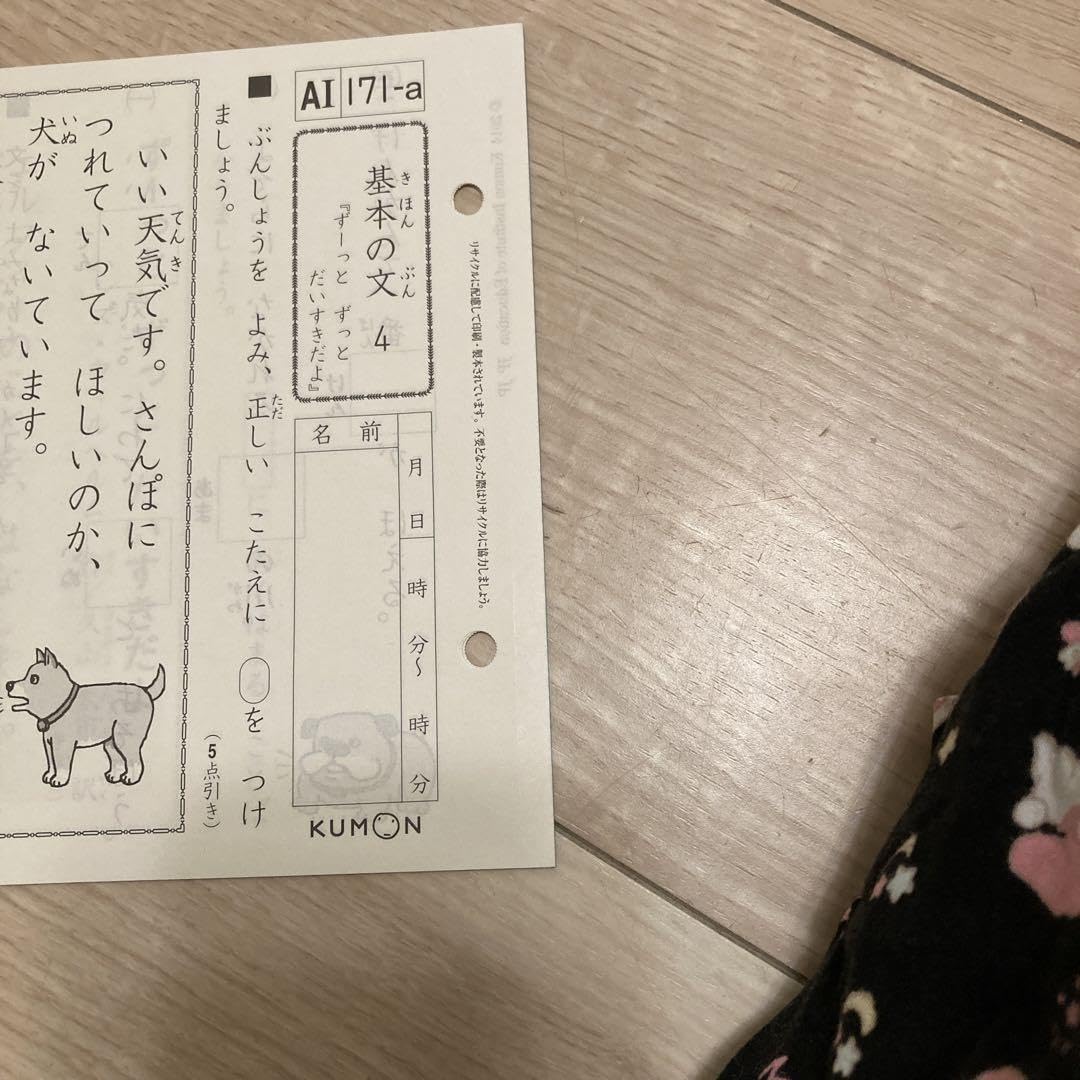 AI 171-a
基本の文 4
きほん ぶん
『ずーっと ずっと
だいすきだよ』
月 日 時 分〜 時 分
名前
KUMON
リサイクルに配慮して印刷・製本されています。不要となった際はリサイクルに協力しましょう。
■ ぶんしょうを よみ、正しい こたえに ◯を つけ
ただ
ましょう。
(5点引き)
いい 天気です。さんぽに
てんき
つれていって ほしいのか、
犬が ないています。
いぬ